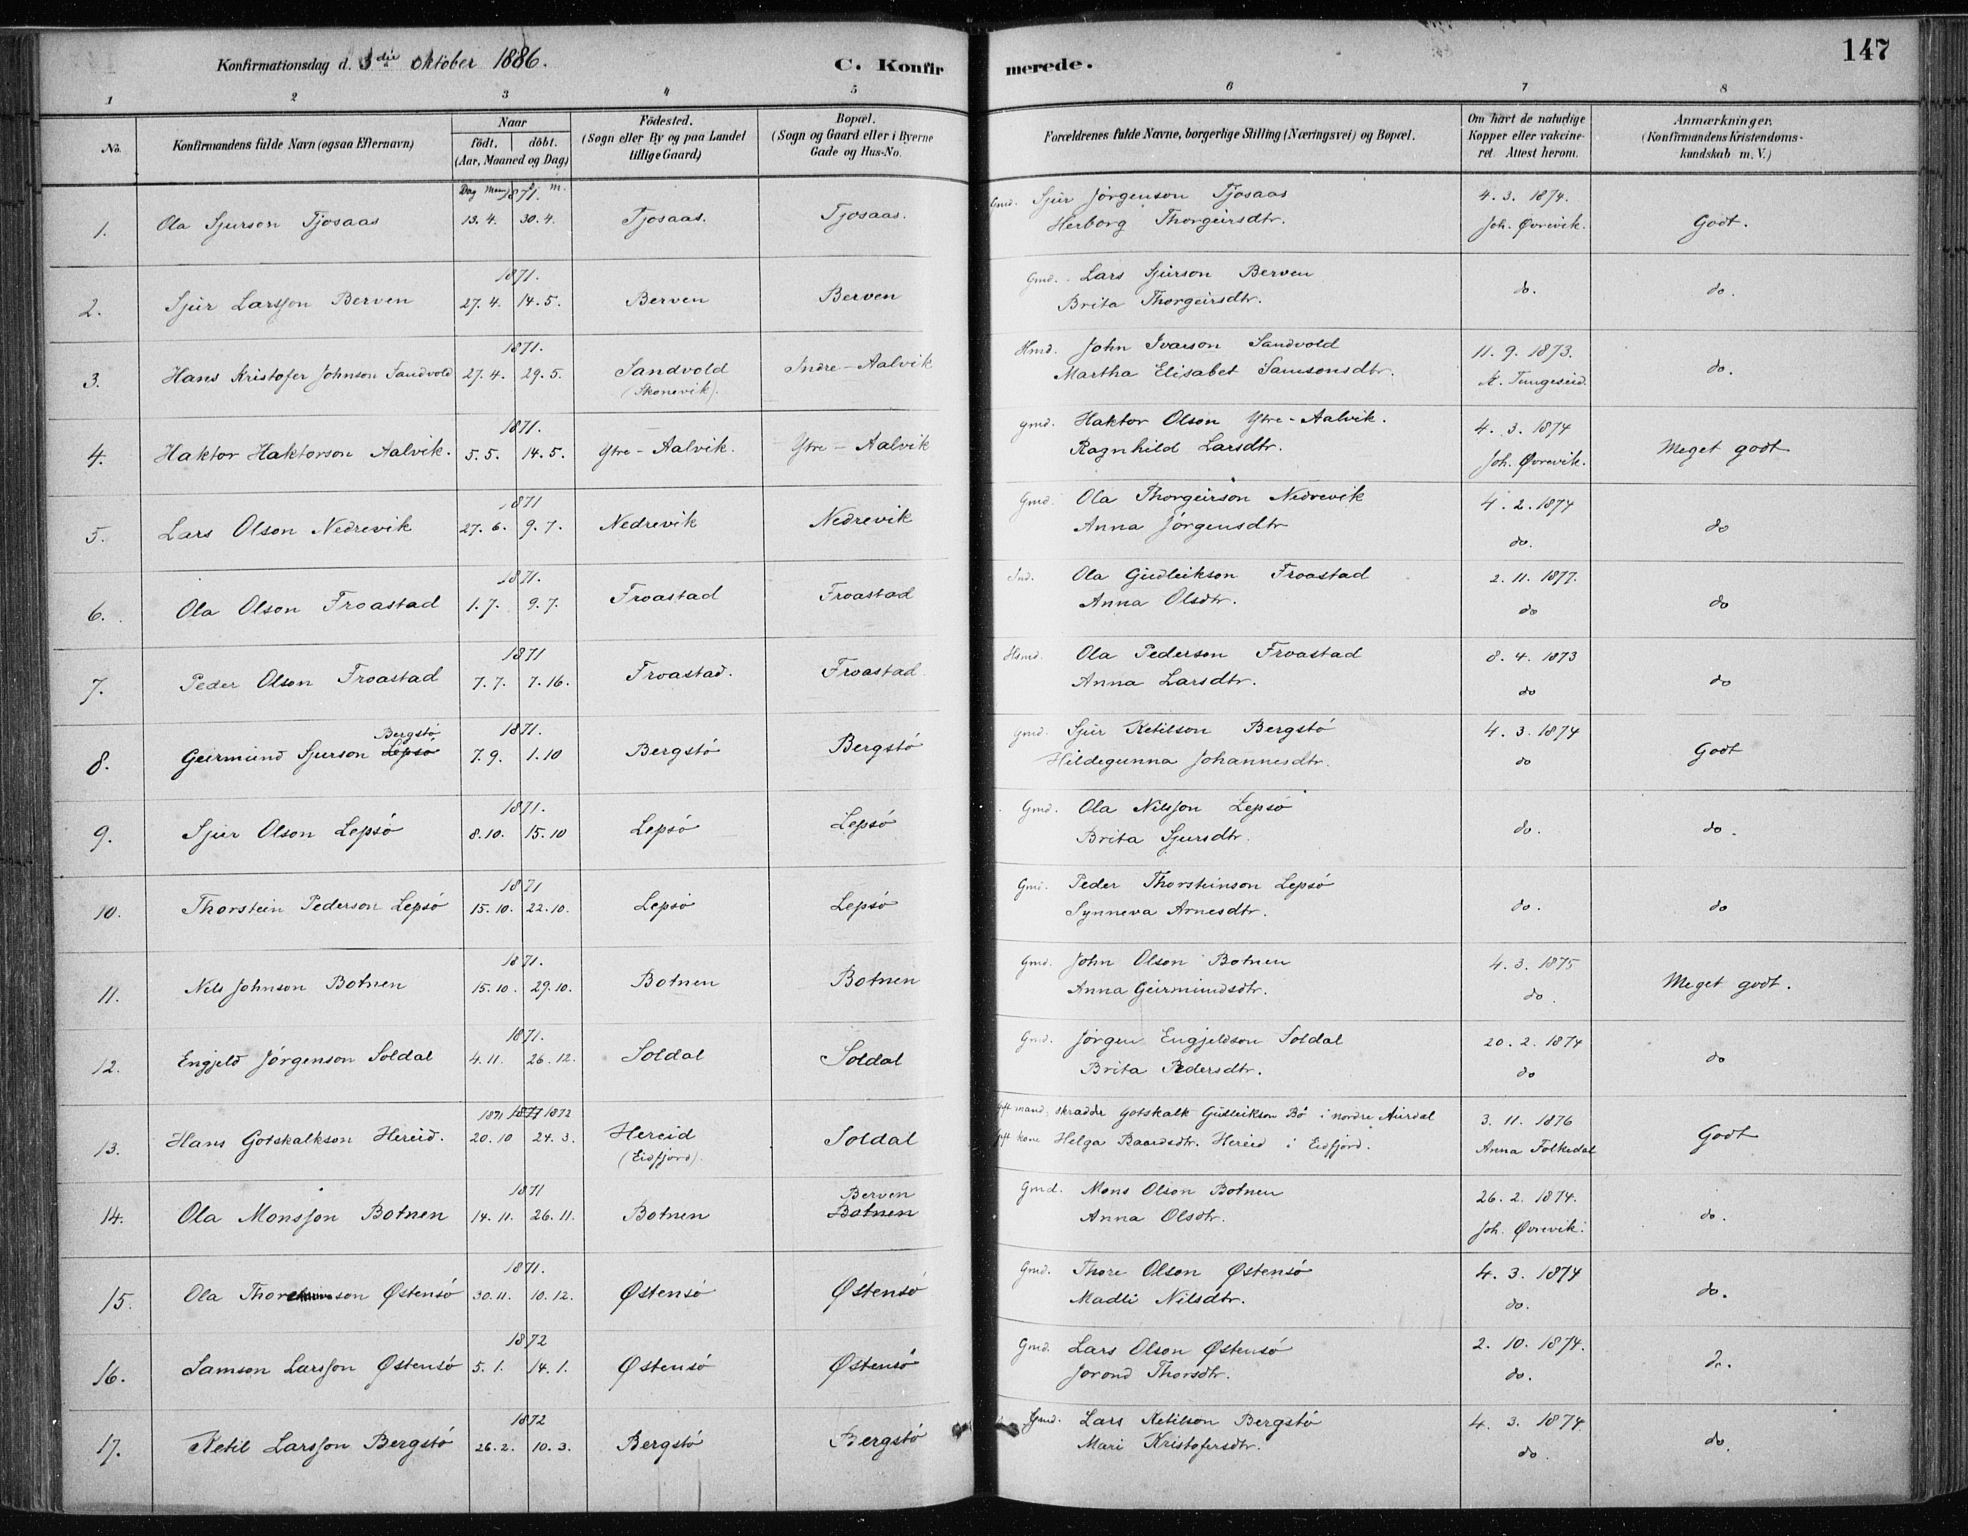 147
Konfirmationsdag d. 3die Oktober 1886. C. Konfirmerede.
1 2 3 4 5 6 7 8
No. Konfirmandens fulde Navn (ogsaa Efternavn) Naar født. døbt. (Aar, Maaned og Dag) Födested. (Sogn eller By og paa Landet tillige Gaard) Bopæl. (Sogn og Gaard eller i Byerne Gade og Hus-No. Forældrenes fulde Navne, borgerlige Stilling (Næringsvei) og Bopæl. Om havt de naturlige Kopper eller vakcineret. Attest herom. Anmærkninger. (Konfirmandens Kristendomskundskab m. V.)
Dag 1871. m.
1. Ola Sjurson Tjosaas 13. 4. 30. 4. Tjosaas. Tjosaas. Gmd. Sjur Jørgenson Tjosaas 4. 3. 1874. Godt.
Herborg Thorgeirsdtr. Joh. Øvrevik.
1871.
2. Sjur Larsson Berven 27. 4. 14. 5. Berven Berven Gmd. Lars Sjurson Berven do. do.
Brita Thorgeirsdtr.
1871.
3. Hans Kristofer Johnson Sandvold 27. 4. 29. 5. Sandvold (Skonevik). Indre-Aalvik Hmd. John Ivarson Sandvold 11. 9. 1873. do.
Martha Elisabet Samsonsdtr. Tungeseid.
1871.
4. Haktor Haktorson Aalvik. 5. 5. 14. 5. Ytre-Aalvik. Ytre-Aalvik gmd. Haktor Olson Ytre-Aalvik. 4. 3. 1874 Meget godt
Ragnhild Larsdtr. Joh. Øvrevik.
1871
5. Lars Olson Nedrevik 27. 6. 9. 7. Nedrevik Nedrevik Gmd. Ola Thorgeirson Nedrevik 4. 2. 1874 do
Anna Jørgensdtr do.
1871.
6. Ola Olson Froastad 1. 7. 9. 7. Froastad Froastad Ind. Ola Gudleikson Froastad 2. 11. 1877. do
Anna Olsdtr. do
1871
7. Peder Olson Froastad 7. 7. 7. 16. Froastad. Froastad. Hsmd. Ola Pederson Froastad 8. 4. 1873 do
Anna Larsdtr. do
Bergstø 1871.
8. Geirmund Sjurson Lepsø 7. 9. 1. 10 Bergstø Bergstø gmd. Sjur Ketilson Bergstø 4. 3. 1874 Godt
Hildegunna Johannesdtr. do
1871.
9. Sjur Olson Lepsø 8. 10. 15. 10 Lepsø Lepsø Gmd. Ola Nilsson Lepsø do. do.
Brita Sjursdtr.
1871
10. Thorstein Pederson Lepsø 15. 10. 22. 10. Lepsø Lepsø Gmd. Peder Thorsteinson Lepsø do. do
Synneva Arnesdtr.
1871.
11. Nils Johnson Botnen 15. 10. 29. 10. Botnen Botnen Gmd. John Olson Botnen 4. 3. 1875 Meget godt.
Anna Geirmundsdtr. do.
1871.
12. Engjeld Jørgenson Soldal 4. 11. 26. 12. Soldal Soldal Gmd. Jørgen Engjeldson Soldal 20. 2. 1874 do
Brita Pedersdtr. do
1871 1871 1872
13. Hans Gotskalkson Hereid. 20. 10 24. 3. Hereid (Eidfjord). Soldal gift mand, skrædder Gotskalk Gudleikson Bø i nordre Aurdal 3. 11. 1876 Godt
gift kone Helga Baardsdtr. Hereid i Eidfjord. Anna Folkedal
1871 Berven
14. Ola Monsson Botnen 14. 11. 26. 11. Botnen Botnen Gmd. Mons Olson Botnen 26. 2. 1874. do.
Anna Olsdtr. Joh. Øvrevik.
1871.
15. Ola Thorson Østensø 30. 11. 10. 12. Østensø Østensø Gmd. Thore Olson Østensø 4. 3. 1874 do.
Madli Nilsdtr. do.
1872
16. Samson Larsson Østensø 5. 1. 14. 1. Østensø Østensø Gmd. Lars Olson Østensø 2. 10. 1874. do.
Jorond Thorsdtr. do.
1872
17. Ketil Larsson Bergstø 26. 2. 10. 3. Bergstø Bergstø Gmd. Lars Ketilson Bergstø 4. 3. 1874. do.
Mari Kristofersdtr. do.